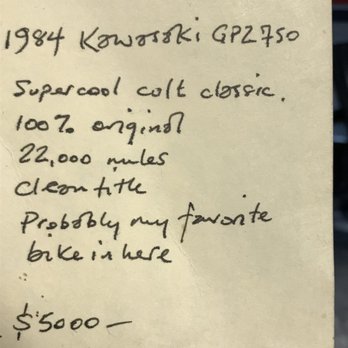 1984 Kawasaki GPZ750
Supercool cult classic.
100% original
22,000 miles
clean title
Probably my favorite
bike in here
$5000—